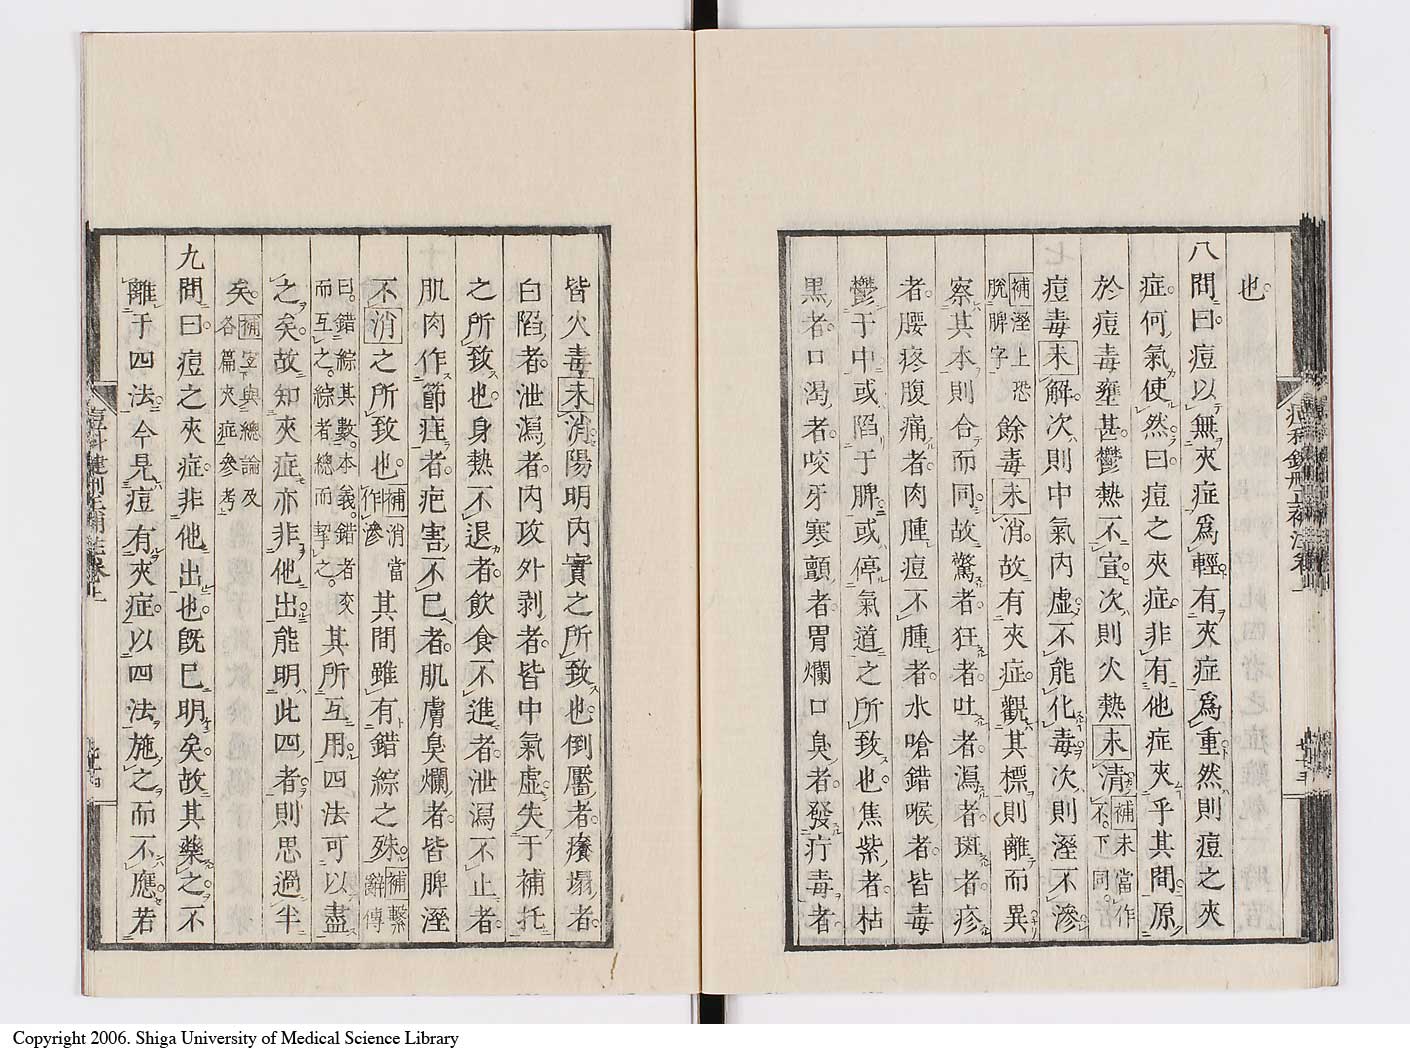 也
八問曰痘以無夾症爲輕有夾症爲重然則痘之夾
症何氣使然曰痘之夾症非有他症夾乎其間原
於痘毒壅甚鬱熱不宣次則火熱未清補未當作不下同
痘毒未解次則中氣内虚不能化毒次則溼不滲
補溼上恐脱脾字餘毒未消故有夾症觀其標則離而異
察其本則合而同故驚者狂者吐者瀉者斑者疹
者腰疼腹痛者肉腫痘不腫者水嗆錯喉者皆毒
鬱于中或陷于脾或停氣道之所致也焦紫者枯
黒者口渇者咬牙寒顫者胃爛口臭者發疔毒者
皆火毒未消陽明内實之所致也倒靨者癢塌者
白陷者泄瀉者内攻外剥者皆中氣虚失于補托
之所致也身熱不退者飲食不進者泄瀉不止者
肌肉作節症者疤害不已者肌膚臭爛者皆脾溼
不消之所致也補消當作滲其間雖有錯綜之殊補繫辭傳
曰錯綜其數本義錯者交而互之綜者總而挈之其所互用四法可以盡
之矣故知夾症亦非他出能明此四者則思過半
矣補宜與總論及各篇夾症參考
九問曰痘之夾症非他出也既巳明矣故其藥之不
離于四法今見痘有夾症以四法施之而不應若
痘科鍵刪正補註卷上
Copyright 2006. Shiga University of Medical Science Library